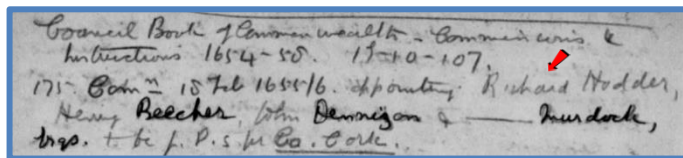 Council Book of Commonwealth - Commissions &
Instructions 1654-58. 19-10-107.
175 Comn 18 Feb 1655/6. appointing Richard Hodder,
Henry Beecher, John Dennigan & —— Murdock,
Esqs. to be J.P.s for Co. Cork.